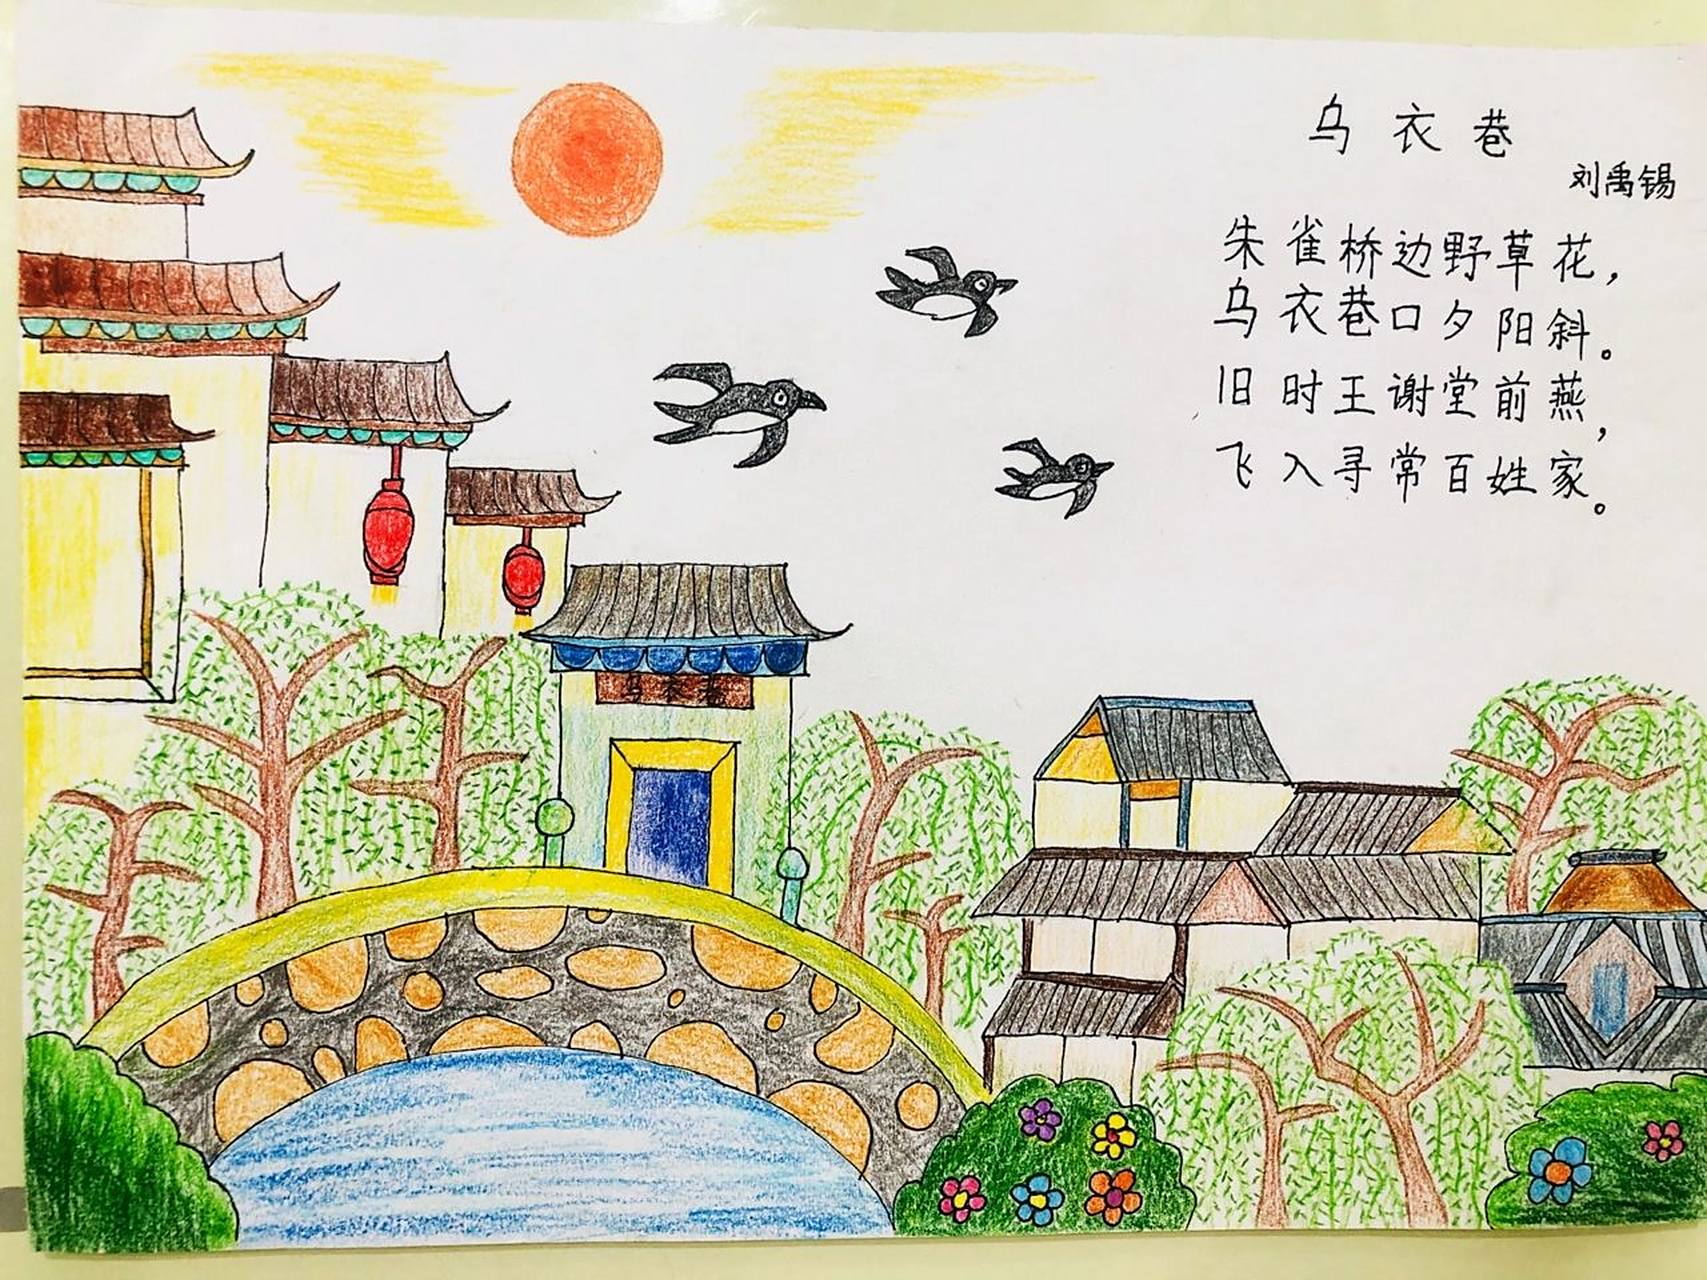 乌衣巷
刘禹锡
朱雀桥边野草花，
乌衣巷口夕阳斜。
旧时王谢堂前燕，
飞入寻常百姓家。
乌衣巷